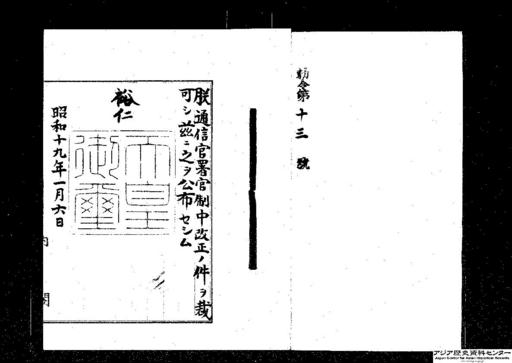 勅令第十三號
朕通信官署官制中改正ノ件ヲ裁
可シ茲ニ之ヲ公布セシム
裕仁
天皇
御璽
昭和十九年一月六日
内閣
アジア歴史資料センター
Japan Center for Asian Historical Records